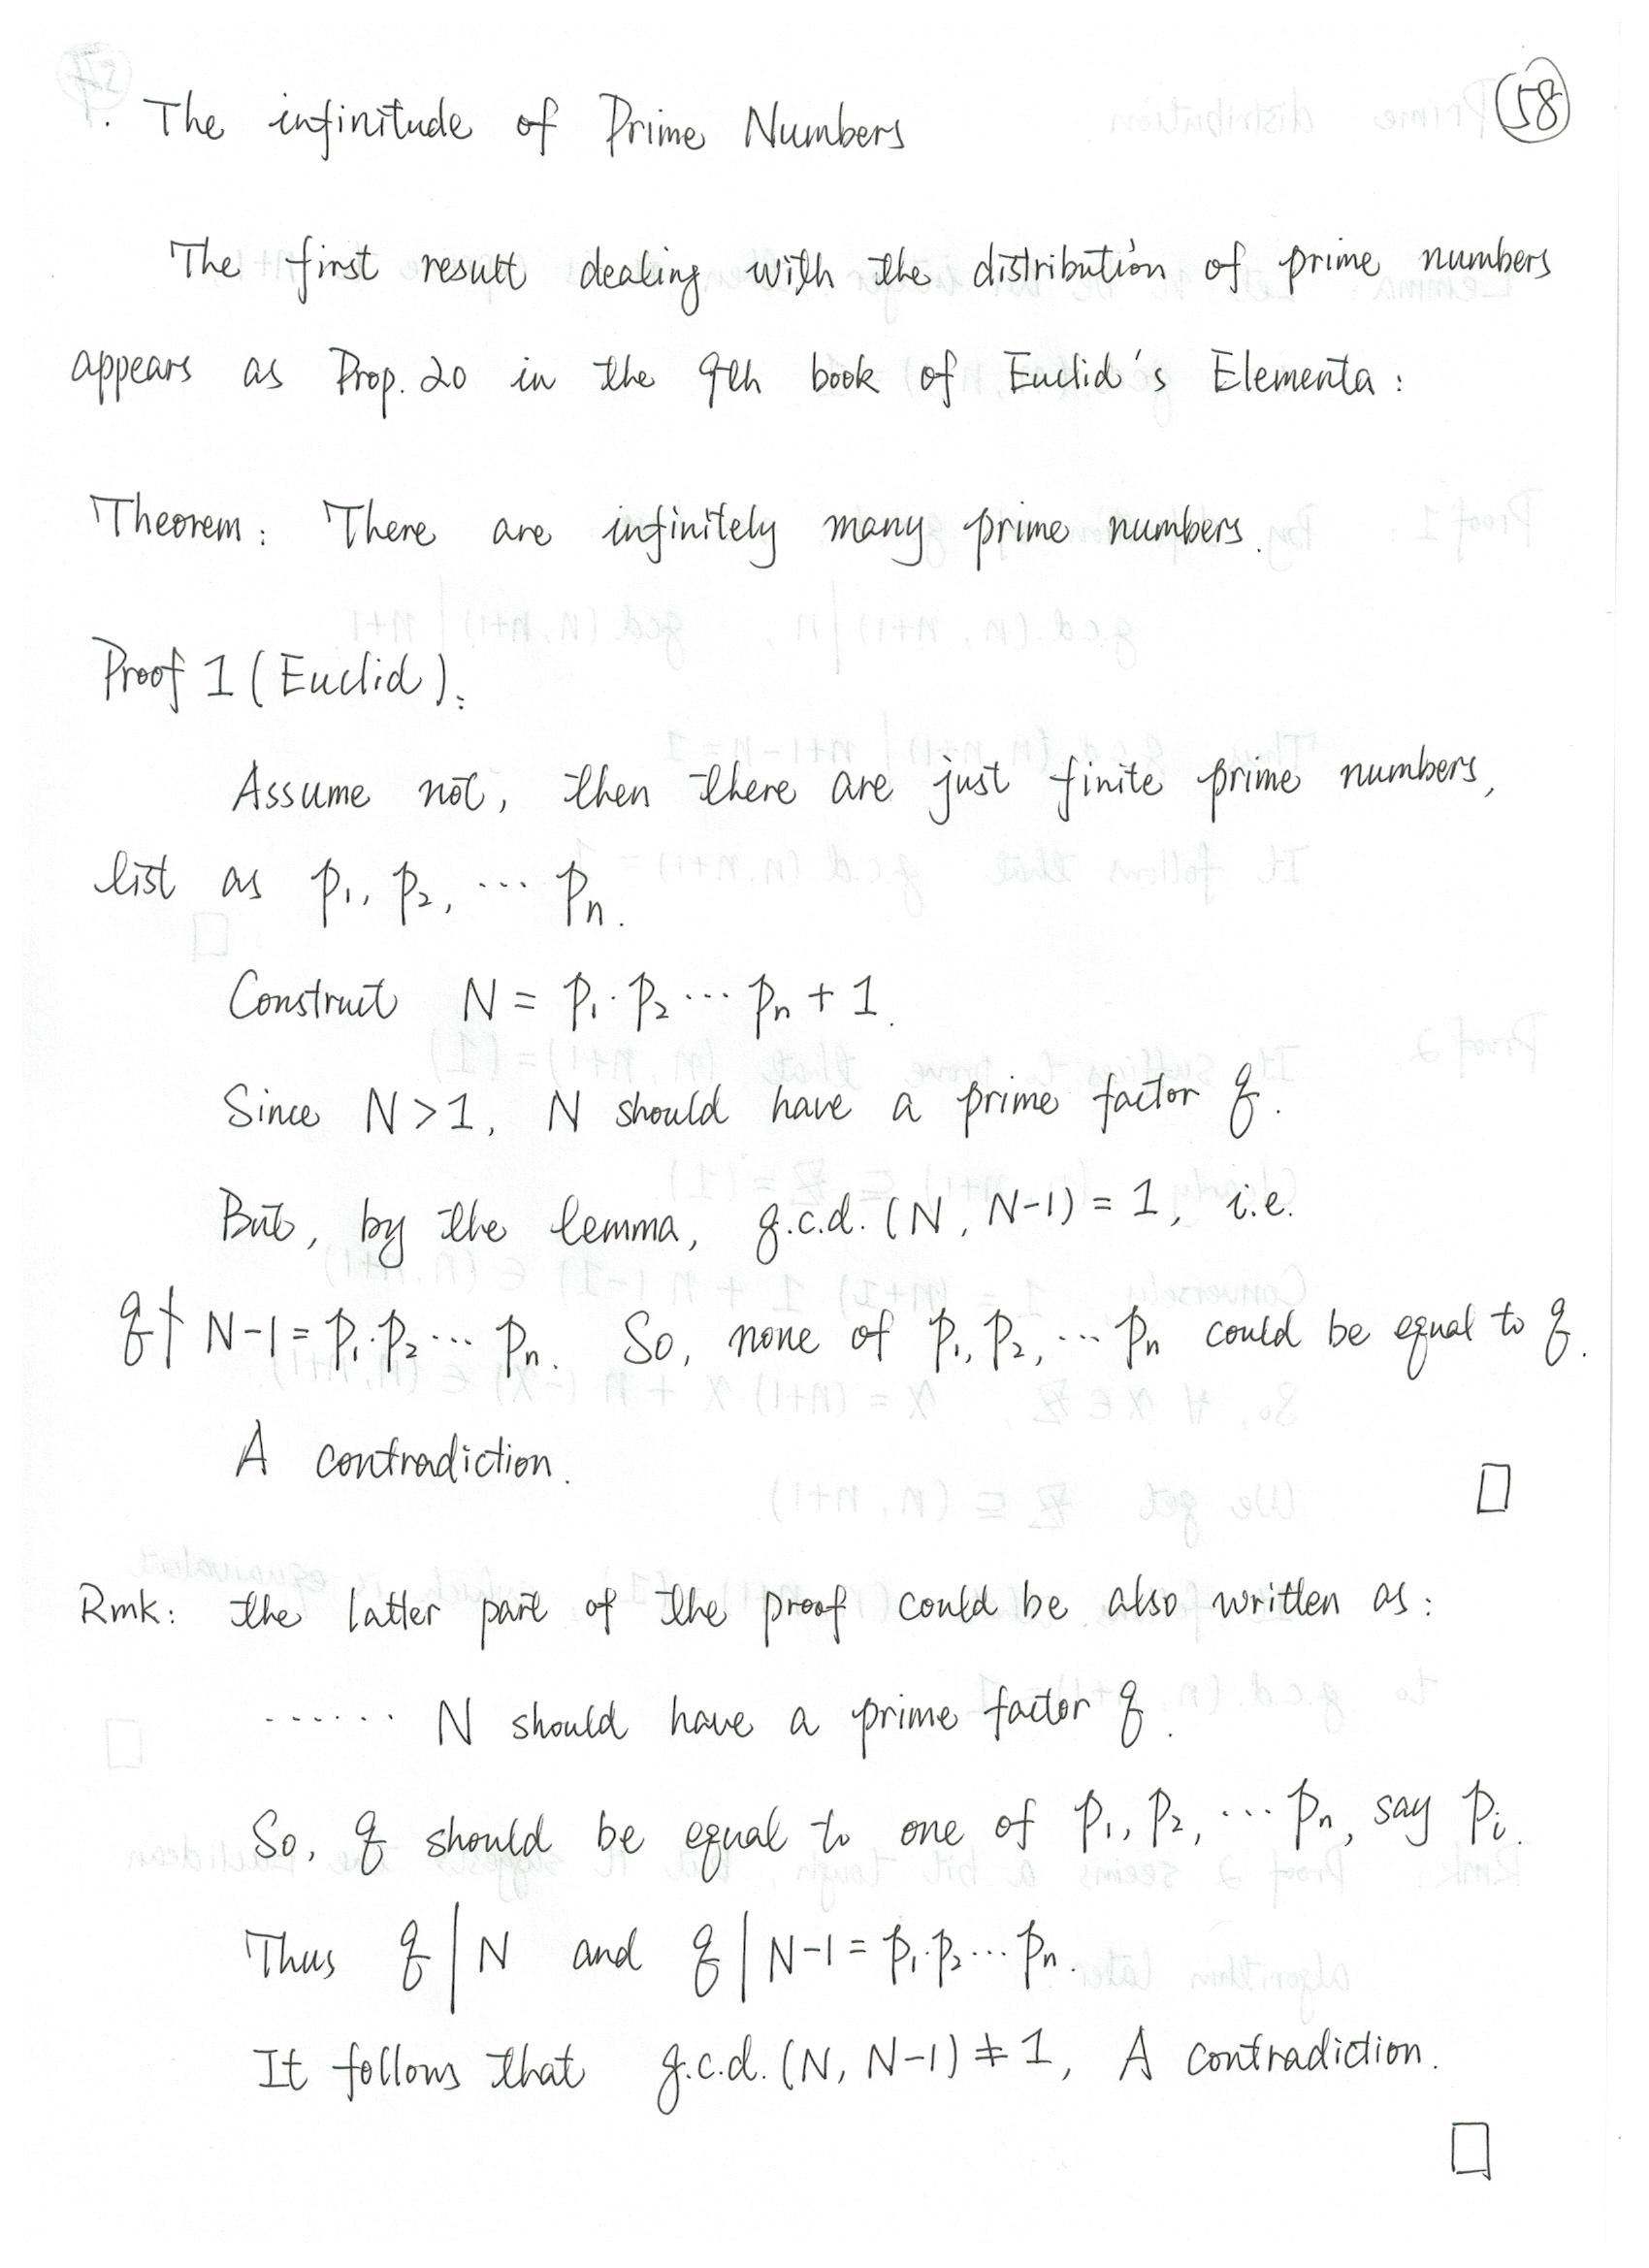 58
The infinitude of Prime Numbers
The first result dealing with the distribution of prime numbers
appears as Prop. 20 in the 9th book of Euclid's Elementa :
Theorem : There are infinitely many prime numbers.
Proof 1 (Euclid) :
Assume not, then there are just finite prime numbers,
list as p₁, p₂, ⋯ pₙ.
Construct N = p₁ · p₂ ⋯ pₙ + 1.
Since N > 1, N should have a prime factor q.
But, by the lemma, g.c.d. (N, N-1) = 1, i.e.
q ∤ N-1 = p₁·p₂ ⋯ pₙ. So, none of p₁, p₂, ⋯ pₙ could be equal to q.
A contradiction.
□
Rmk : the latter part of the proof could be also written as :
⋯⋯ N should have a prime factor q.
So, q should be equal to one of p₁, p₂, ⋯ pₙ, say pᵢ.
Thus q | N and q | N-1 = p₁·p₂ ⋯ pₙ.
It follows that g.c.d. (N, N-1) ≠ 1, A contradiction.
□